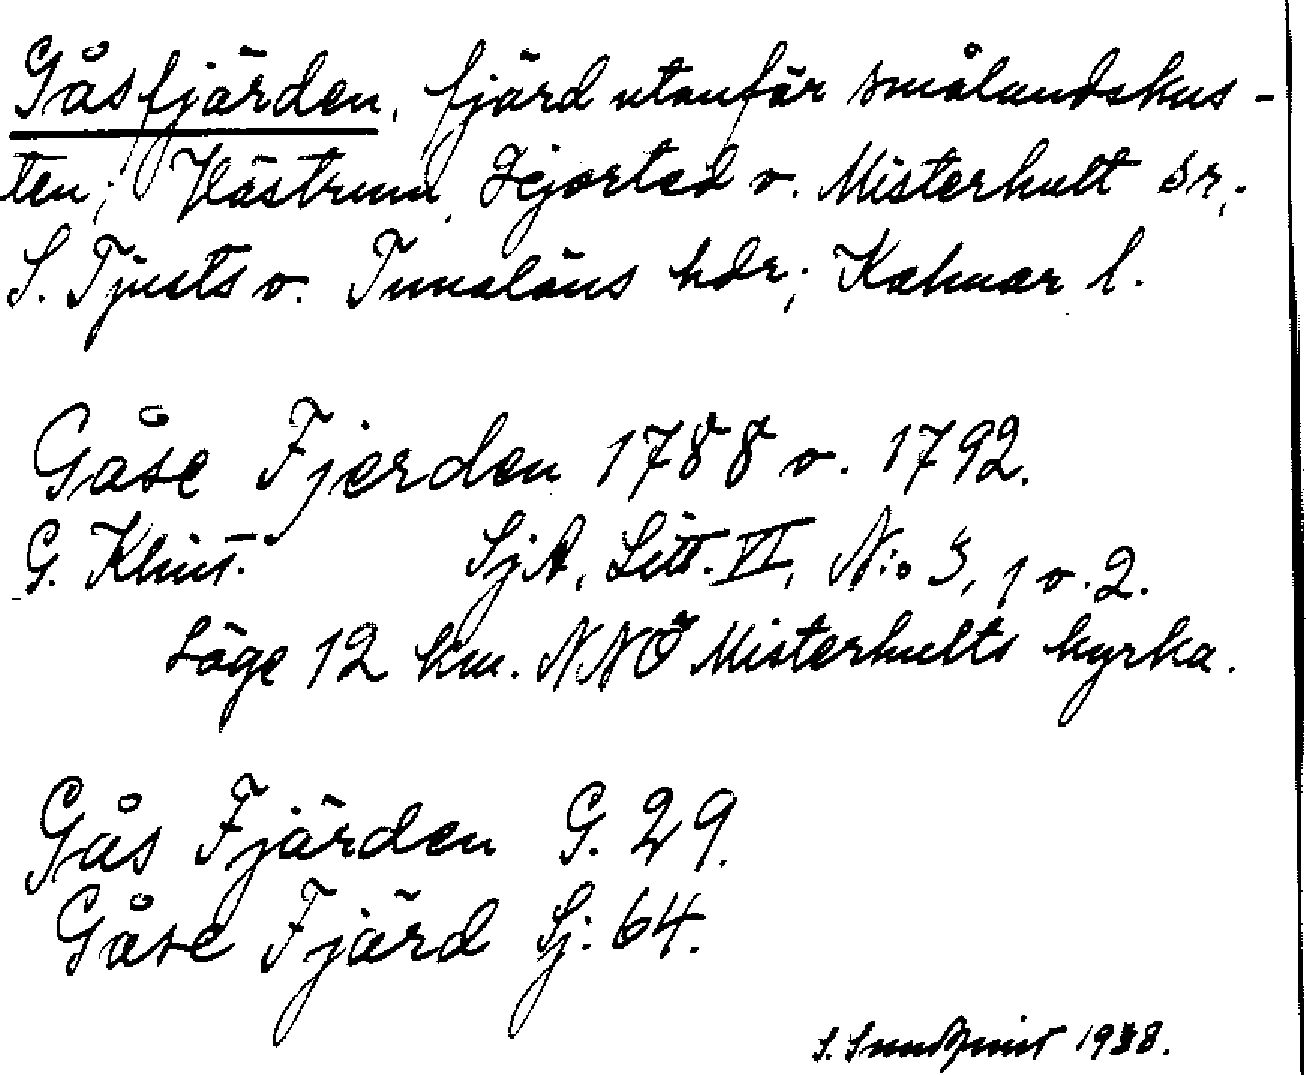 Gåsfjärden, fjärd utanför smålandskus-
ten; Västrum, Hjorted o. Misterhult snr;
S. Tjusts o. Tunaläns hdr; Kalmar l.
Gåse Fjerden 1788 o. 1792.
G. Klint. SjA, Litt. VI, N:o 3, 1 o. 2.
Läge 12 km. NNÖ Misterhults kyrka.
Gås Fjärden G. 29.
Gåse Fjärd Sj. 64.
S. Sundquist 1938.